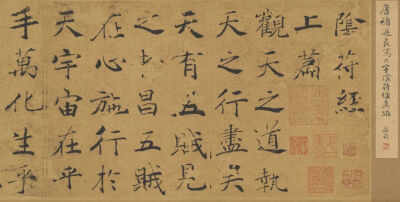 唐褚遂良寫大字陰符經真跡
陰符經
上篇
觀天之道執
天之行盡矣
天有五賊見
之者昌五賊
在心施行於
天宇宙在乎
手萬化生乎